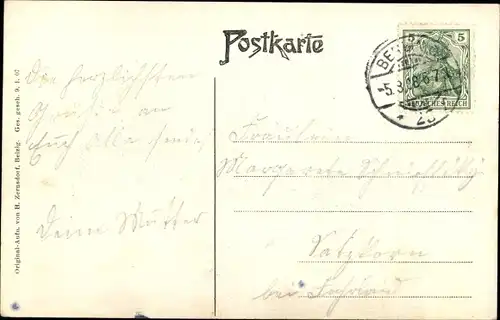 Postkarte
5
DEUTSCHES REICH
Die herzlichsten
Grüße an
Euch alle sendet
Deine Mutter
Fräulein
Margarete
Satzkorn
bei Fahrland
Original-Aufn. von H. Zernsdorf, Belzig. Ges. gesch. 9. 1. 07